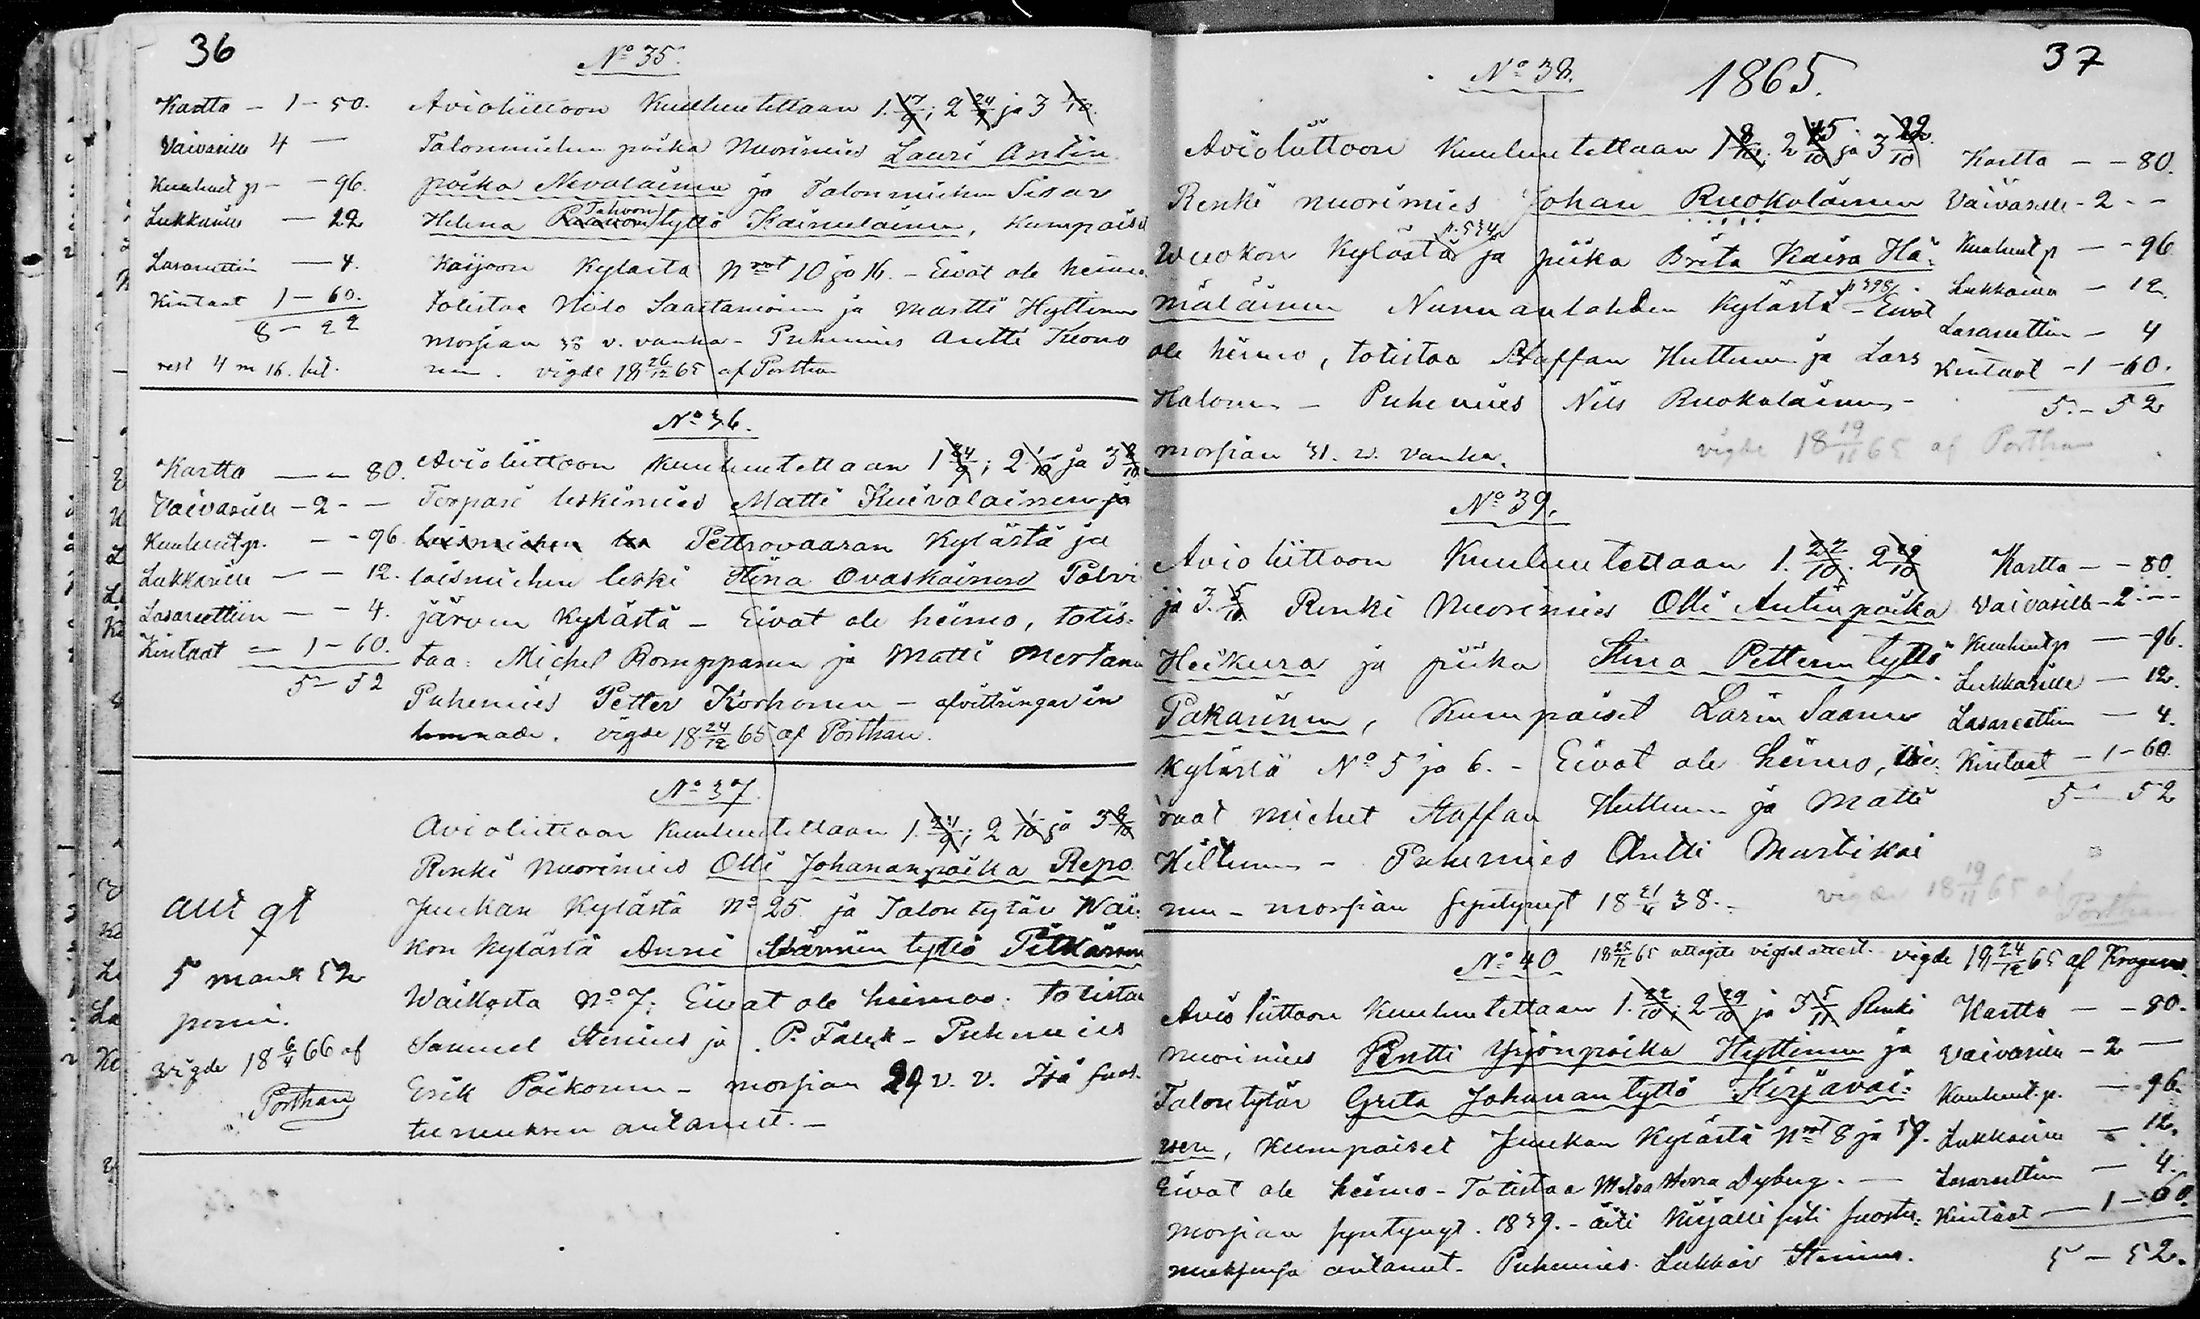 36
No 35.
Kartta - 1 - 50.
Vaivasille 4 -
Kuulut p. - - 96.
Lukkarille - 22
Lasarettiin - 4.
Kintaat 1 - 60.
8 - 22
rest 4 m 16.
Avioliittoon Kuulutetaan 1. 17/9; 2 24/9 ja 3 1/10.
Talonmiehen poika Nuorimies Lauri Antin
poika Nevalainen ja Talonmiehen Sisar
Helena Tahvon tyttö Kainulainen, Kumpaiset
Kajoon Kylästä Nrot 10 ja 16. - Eivät ole heimo
totistaa Niilo Saastamoinen ja Martti Hyttinen
morsian 38 v. vanha - Puhemies Antti Kuono
nen. vigde 18 26/12 65 af Porthan
No 36.
Kartta - - 80.
Vaivasille - 2 - -
Kuulut p. - - 96.
Lukkarille - - 12.
Lasarettiin - - 4.
Kintaat - 1 - 60.
5 - 52
Avioliittoon kuulutetaan 1 24/9; 2 1/10 ja 3 8/10
Torpari leskimies Matti Kuivalainen ja
loismiehen Petrovaaran Kylästä ja
loismiehen leski Stina Ovaskainen Polvi
järven Kylästä - Eivät ole heimo, totis-
taa: Michel Romppanen ja Matti Mertanen
Puhemies Petter Korhonen - afvittringar in
lemnade. vigde 18 24/12 65 af Porthan.
No 37.
aut qt
5 mark 52
penni.
vigde 18 6/4 66 af
Porthan
Avioliittoon kuulutetaan 1. 24/9; 2 1/10 ja 3 8/10
Renki Nuorimies Olli Johananpoika Repo
Juukan Kylästä No 25 ja Talon tytär Wai-
kon kylästä Anni tyttö Pitkänen
Waikosta No 7. Eivät ole heimoo: totistaa
Samuel Stenius ja P. Falck - Puhemies
Erik Poikonen - morsian 29 v. v. Isä suos-
tumuksen antanut. -
37
1865.
No 38.
Avioliittoon Kuulutetaan 1 8/10; 2 15/10 ja 3 22/10
Renki nuorimies Johan Ruokolainen
Wuokon kylästä p. 534 ja piika Brita Kaisa Hä-
mäläinen Nunnanlahden kylästä p 398 - Eivät
ole heimo, totistaa Staffan Huttunen ja Lars
Halonen - Puhemies Nils Ruokolainen -
morsian 31. v. vanha.
vigde 18 19/11 65 af Porthan
Kartta - - 80.
Vaivasille - 2 - -
Kuulut p - - 96
Lukkarille - 12.
Lasarettiin - 4
Kintaat - 1 - 60.
5. - 52
No 39.
Avioliittoon Kuulutetaan 1. 22/10. 2 29/10
ja 3. 5/11 Renki Nuorimies Olli Antinpoika
Heikura ja piika Stina Petterin tyttö
Pakarinen, Kumpaiset Larin Saaren
kylästä No 5 ja 6. - Eivät ole heimo, vie-
raat miehet Staffan Huttunen ja Matti
Hiltunen - Puhemies Antti Martikai
nen - morsian syntynyt 18 21/4 38. -
vigde 18 19/11 65 af
Porthan
Kartta - - 80.
Vaivasille - 2 - -
Kuulut p - - 96.
Lukkarille - 12.
Lasarettiin - 4.
Kintaat - 1 - 60
5 - 52
No 40
18 25/11 65 uttagits vigsel attest. vigde 18 24/12 65 af Krogerus.
Avioliittoon kuulutetaan 1. 22/10; 2 29/10 ja 3 5/11 Renki
nuorimies Pentti Yrjönpoika Hyttinen ja
Talontytär Greta Johanan tyttö Kirjavai-
nen, kumpaiset Juukan kylästä Nrot 8 ja 19.
Eivät ole heimo - Totistaa Metsa Herra Dyberg. -
Morsian syntynyt 1839. - äiti kirjallisesti suostu-
muksensa antanut. Puhemies Lukkar Stenius.
Kartta - - 80.
Vaivasille - 2 -
Kuulut. p. - 96.
Lukkarille - 12.
Lasarettiin - 4.
Kintaat - 1 - 60.
5 - 52.